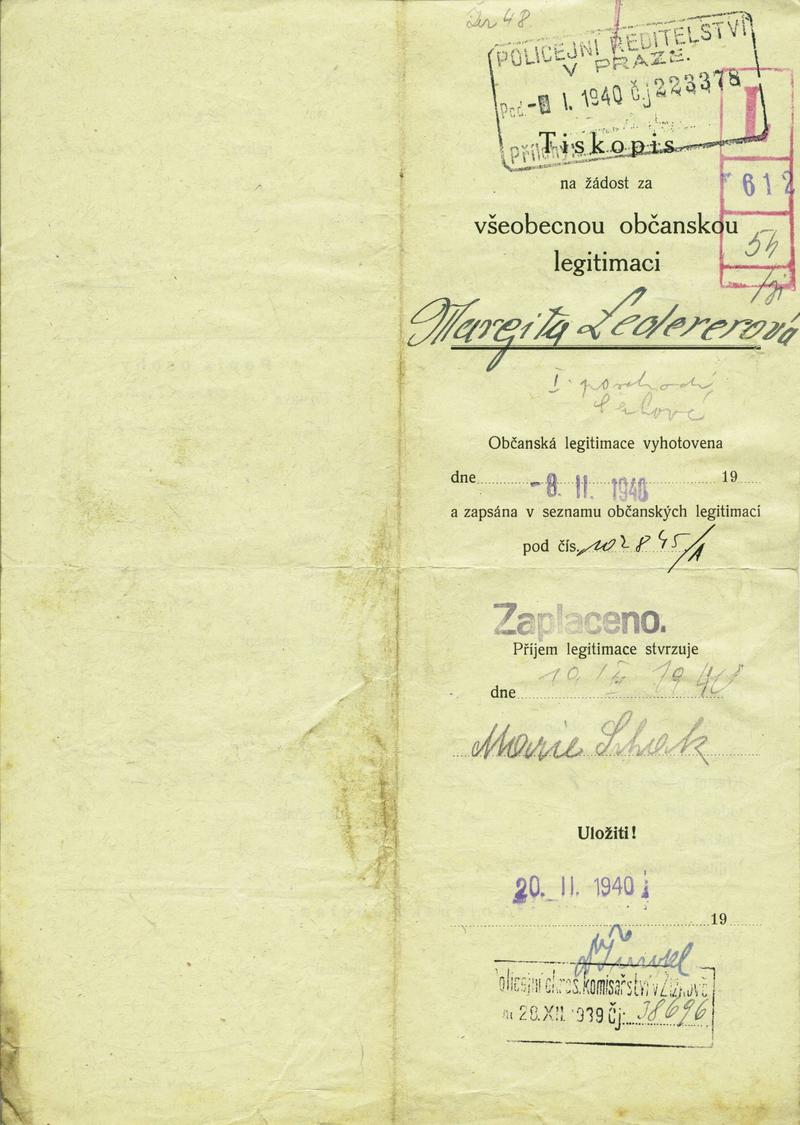 POLICEJNÍ ŘEDITELSTVÍ
V PRAZE.
Pod. -8 I. 1940 čj 223378
Přílohy
L
Tiskopis
na žádost za
612
všeobecnou občanskou
legitimaci
Margita Ledererová
I. poschodí
Občanská legitimace vyhotovena
dne -8. II. 1940 19
a zapsána v seznamu občanských legitimací
pod čís. 102845/A
Zaplaceno.
Příjem legitimace stvrzuje
dne 1940
Marie
Uložiti!
20. II. 1940
19
Policejní okres. komisařství v Žižkově
28. XII. 1939 čj: 38696